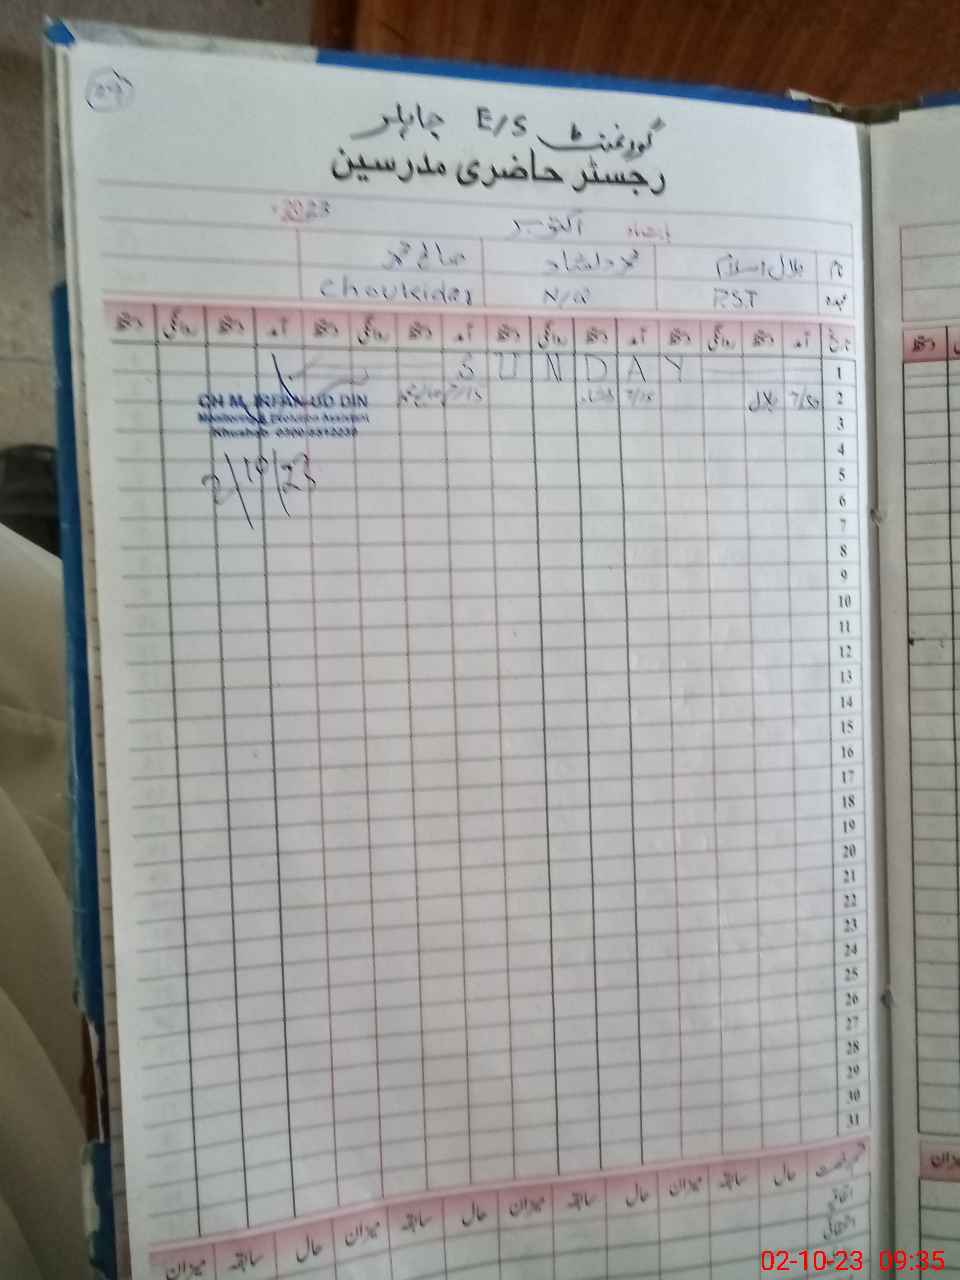 گورنمنٹ E/S چاہلر
رجسٹر حاضری مدرسین
بابت ماہ اکتوبر 2023
نام بلال اسلام محمد دلشاد صالح محمد
عہدہ P.S.T N/Q Chowkidar
تاریخ آمد دستخط روانگی دستخط آمد دستخط روانگی دستخط آمد دستخط روانگی دستخط آمد دستخط روانگی دستخط
1 S U N D A Y
2 7/50 بلال 7/15 دلشاد 7/15 صالح محمد
CH M. IRFAN UD DIN
Monitoring & Evaluation Assistant
Khushab
3
2/10/23
4
5
6
7
8
9
10
11
12
13
14
15
16
17
18
19
20
21
22
23
24
25
26
27
28
29
30
31
قسم رخصت حال سابقہ میزان حال سابقہ میزان حال سابقہ میزان حال سابقہ میزان
اتفاقی
02-10-23 09:35